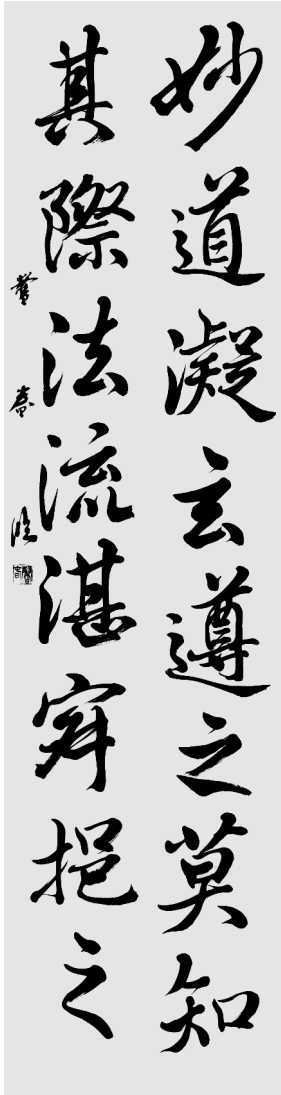 妙道凝玄遵之莫知
其際法流湛寂挹之
臨